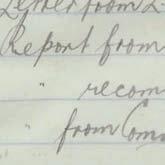 Letter from
Report from
" recom
from Com